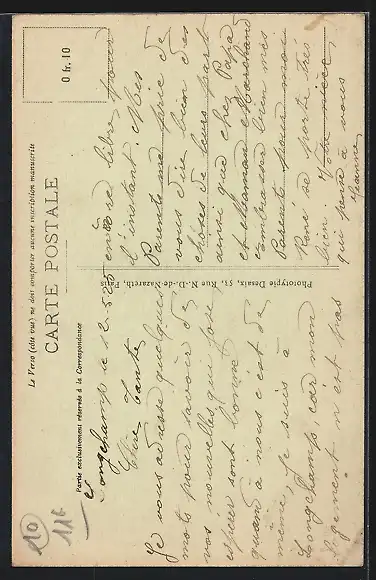 Le Verso (côté vue) ne doit comporter aucune inscription manuscrite
CARTE POSTALE
0 fr. 10
Partie exclusivement réservée à la Correspondance
Longchamp le 12.5.25
Chère Tante
Je vous adresse quelques
mots pour savoir de
vos nouvelles qui j'ose
espérer sont bonne
quand à nous c'est de
même, je suis à
Longchamps, car mon
logement n'est pas
encore libre pour
l'instant. Mes
Parents me prie de
vous dire bien des
choses de leurs part
ainsi que chez Papa
et Maman Marchand
embrasser bien mes
Parents pour moi
René se porte très
bien. Votre nièce,
qui pense à vous
Jeanne
Phototypie Desaix, 53, Rue N.-D.-de-Nazareth, Paris
10
116